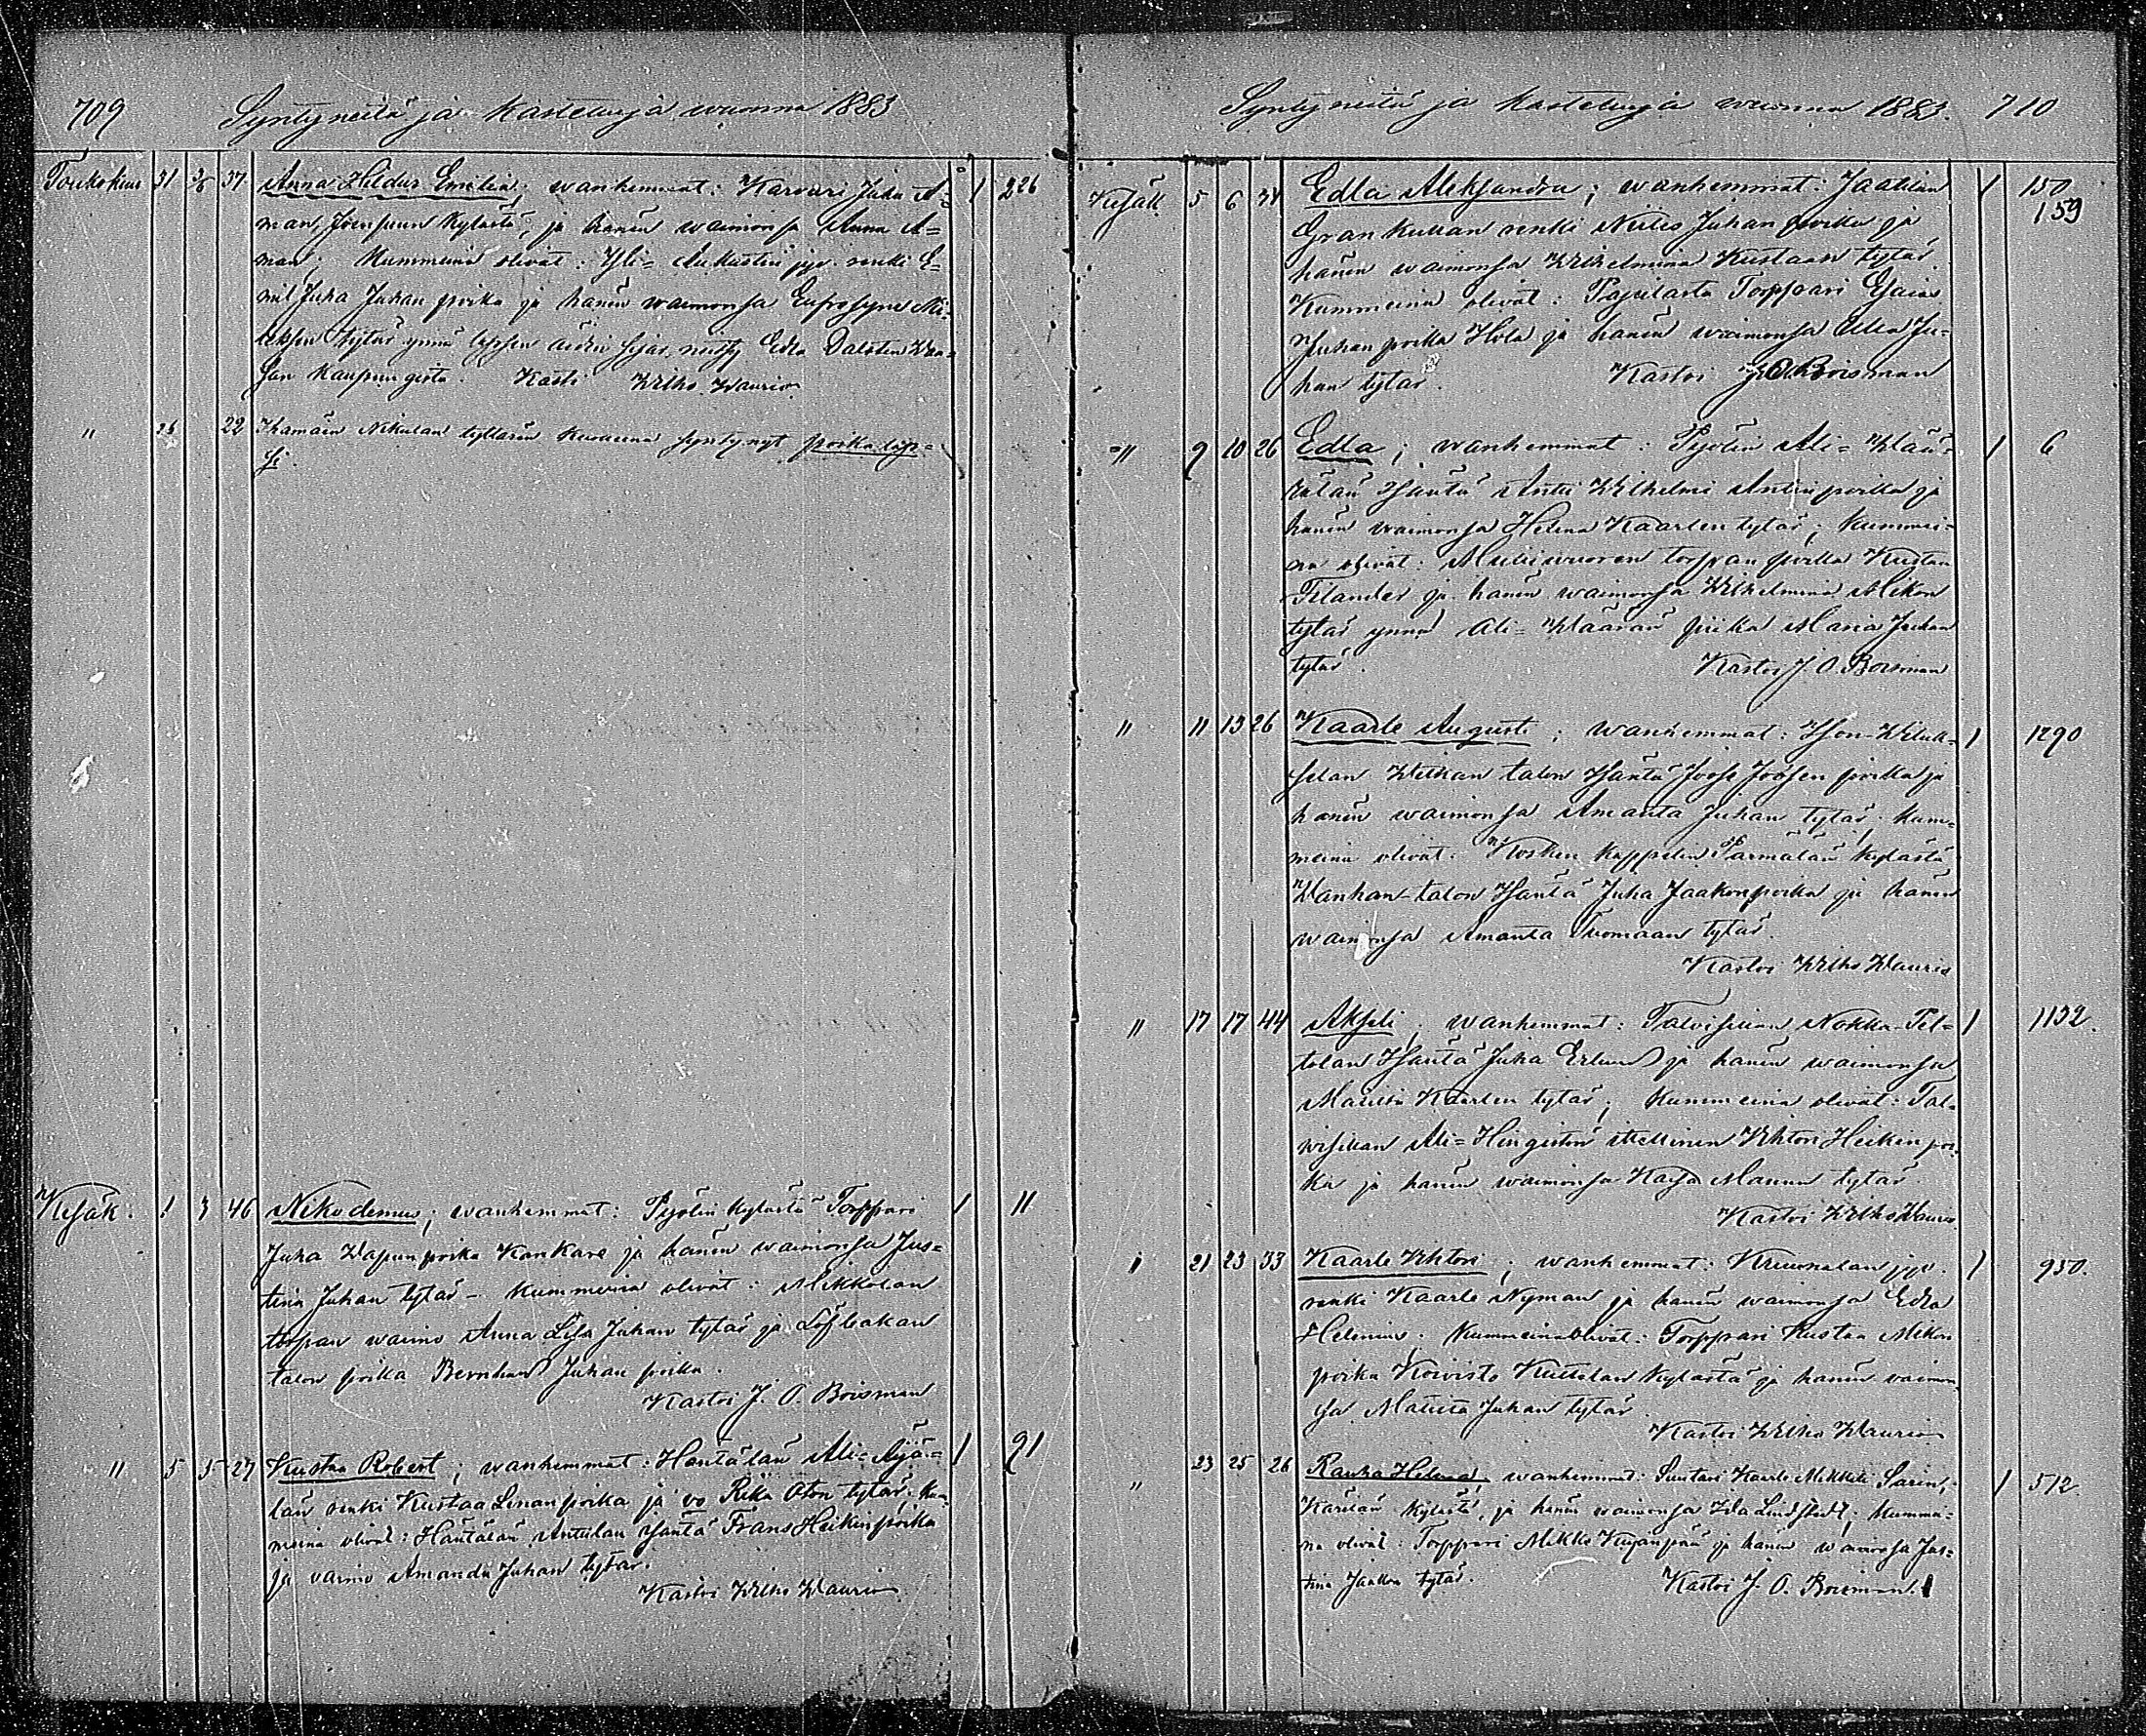 709 Syntyneitä ja kastetuja wuonna 1883
Toukokuu 31 3/6 37 Anna Hildur Emilia; wanhemmat: Karvari Juha A= 1 226
man, Joensuun kylästä, ja hänen waimonsa Anna A=
man; Kummeina olivat: Yli= renki E=
mil Juha Juhan poika ja hänen waimonsa Eufrosyne Mi=
tytär ynnä lapsen äidin sisar neitsy Edla Dalsten Waa=
san kaupungista. Kasti Wilho Waurio
" 22 Ihamäen Nikulan tyttären kuolleena syntynyt poika lap=
si.
Kesäk. 1 3 46 Nikodemus; wanhemmat: Pyölin kylästä Torppari 1 11
Juha poika Kankare ja hänen waimonsa Jus=
tina Juhan tytär - kummeina olivat: Mikkolan
torpan waimo Anna Lisa Juhan tytär ja Löfbakan
talon poika Bernhard Juhan poika.
Kastoi J. O. Boisman
" 5 5 27 Kustaa Robert; wanhemmat: Häntälän Ali=Äijä= 1 91
län renki Kustaa Linan poika ja vo Rika Oton tytär. kum=
meina olivat: Häntälän Anttilan isäntä Frans Heikin poika
ja vaimo Amanda Juhan tytär.
Kastoi Wilho Waurio
Syntyneitä ja kastetuja wuonna 1883. 710
Kesäk. 5 6 34 Edla Aleksandra; wanhemmat: Jaatilan 1 150
159
Grankullan renki Niilis Juhan poika ja
hänen waimonsa Wilhelmina Kustaan tytär
Kummeina olivat: Pajulasta Torppari Esaias
Juhan poika Hola ja hänen waimonsa Ulla Ju=
han tytär. Kastoi J. O. Boisman
" 9 10 26 Edla; wanhemmat: Pyölin Ali=Klää= 1 6
isäntä Antti Wilhelmi Antin poika ja
hänen waimonsa Helena Kaarlen tytär; kummei=
na olivat: torpan poika Kustaa
Filander ja hänen waimonsa Wilhelmina Mikon
tytär ynnä Ali=Kläärän piika Maria Juhan
tytär. Kastoi J. O. Boisman
" 11 13 26 Kaarle Augusti; wanhemmat: Ison-Wilik= 1 1290
selan talon isäntä Joose Joosen poika ja
hänen waimonsa Amanta Juhan tytär. kum=
meina olivat: Kosken kappelin kylästä
Wanhan-talon isäntä Juha Jaakon poika ja hänen
waimonsa Amanta Tuomaan tytär.
Kastoi Wilho Waurio
" 17 17 44 Akseli; wanhemmat: Talvisillan Nokka-Pel= 1 1132.
tolan isäntä Juha Erlund ja hänen waimonsa
Maiju Kaarlen tytär; kummeina olivat: Tal=
wisillan Ali=Hingiston itsellinen Wihtori Heikin poi
ka ja hänen waimonsa Kaisa Mannun tytär.
Kastoi Wilho Waurio
" 21 23 33 Kaarle Wihtori; wanhemmat: 1 950.
renki Kaarle Nyman ja hänen waimonsa Edla
Helenius. kummeina olivat: Torppari Kustaa Mikon
poika Koivisto Kuttilan kylästä ja hänen vaimon
sa Maria Juhan tytär.
Kastoi Wilho Waurio
" 23 25 26 Rauha Helena; wanhemmat: Suutari Kaarle Mikkeli Sarin, 1 512
Karilan kylästä, ja hänen waimonsa Ida Lindstedt; kummei=
na olivat: Torppari Mikko Kujanpää ja hänen waimonsa Jus=
tina Jaakon tytär. Kastoi J. O. Boisman.